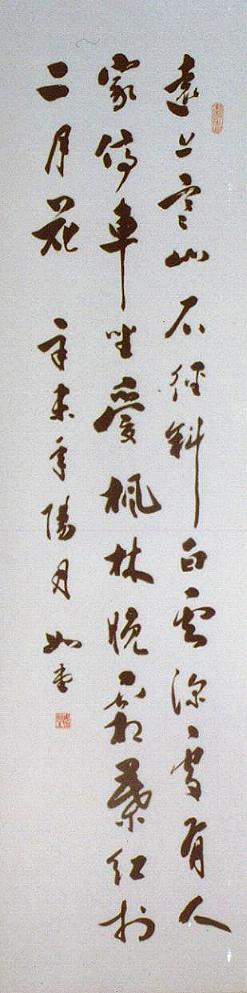 遠上寒山石徑斜白雲深處有人
家停車坐愛楓林晚霜葉紅於
二月花 辛未年陽月 如